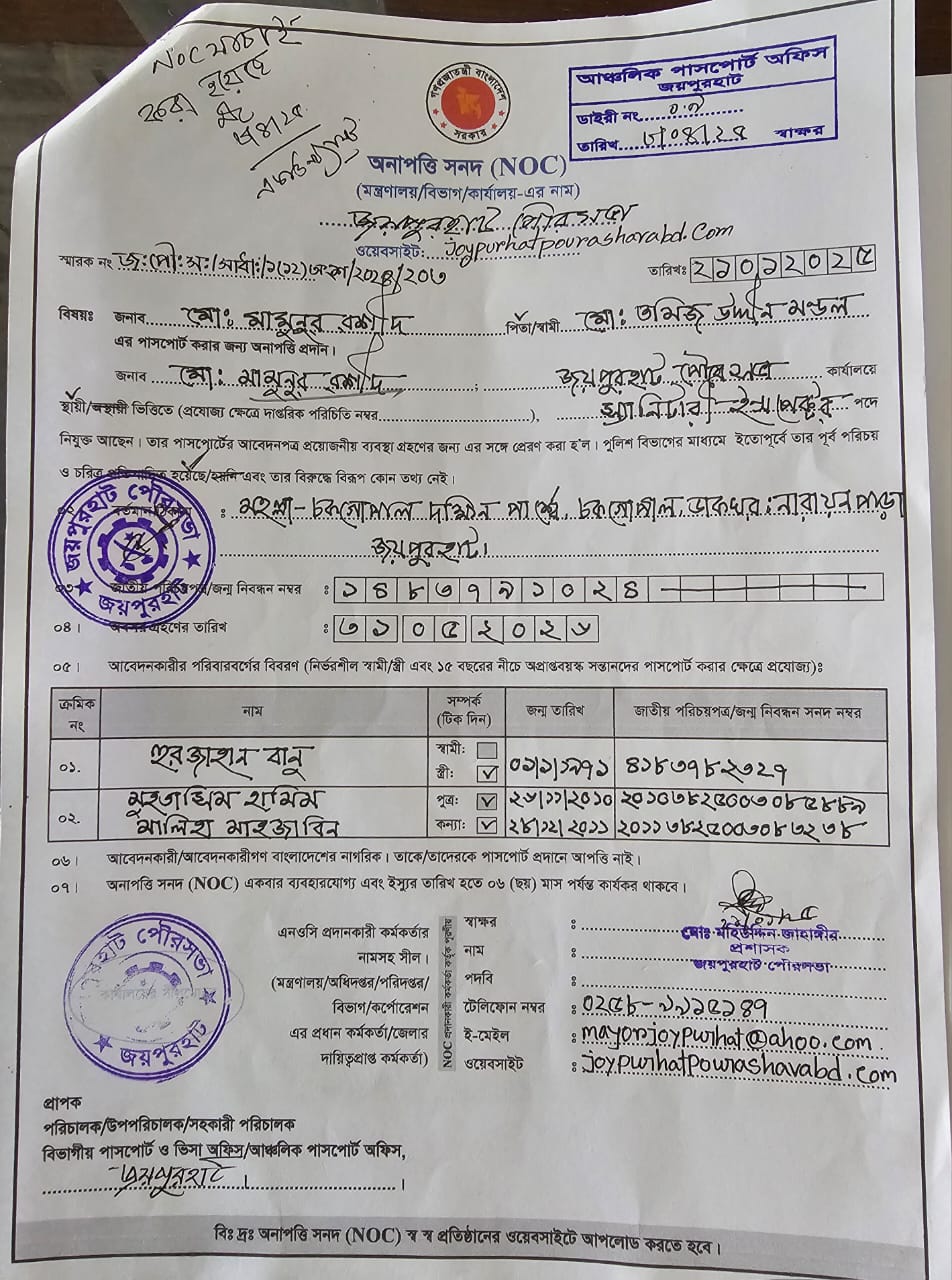 NOC যাচাই
করা হয়েছে
গণপ্রজাতন্ত্রী বাংলাদেশ
সরকার
আঞ্চলিক পাসপোর্ট অফিস
জয়পুরহাট
ডাইরী নং
তারিখ স্বাক্ষর
অনাপত্তি সনদ (NOC)
(মন্ত্রণালয়/বিভাগ/কার্যালয়-এর নাম)
জয়পুরহাট পৌরসভা
ওয়েবসাইট: joypurhatpourashavabd.com
স্মারক নং জ:পৌ:স:/সাধা:/১(১২)/২০২৪/২০৩
তারিখঃ ২১০১২০২৫
বিষয়ঃ জনাব মো: মামুনুর রশীদ পিতা/স্বামী মো: তমিজ উদ্দীন মন্ডল
এর পাসপোর্ট করার জন্য অনাপত্তি প্রদান।
জনাব মো: মামুনুর রশীদ ; জয়পুরহাট পৌরসভা কার্যালয়ে
স্থায়ী/অস্থায়ী ভিত্তিতে (প্রযোজ্য ক্ষেত্রে দাপ্তরিক পরিচিতি নম্বর), স্যানিটারী ইন্সপেক্টর পদে
নিযুক্ত আছেন। তার পাসপোর্টের আবেদনপত্র প্রয়োজনীয় ব্যবস্থা গ্রহণের জন্য এর সঙ্গে প্রেরণ করা হ'ল। পুলিশ বিভাগের মাধ্যমে ইতোপূর্বে তার পূর্ব পরিচয়
ও চরিত্র প্রতিপাদিত হয়েছে/হয়নি এবং তার বিরুদ্ধে বিরূপ কোন তথ্য নেই।
জয়পুরহাট পৌরসভা
জয়পুরহাট
বর্তমান ঠিকানা : মহল্লা - চকগোপাল দক্ষিন পার্শ্বে, চকগোপাল, ডাকঘর: নারায়নপাড়া
জয়পুরহাট।
০৩। জাতীয় পরিচয়পত্র/জন্ম নিবন্ধন নম্বর : ১৪৮৩৭৯১০২৪
০৪। অবসর গ্রহণের তারিখ : ৩১০৫২০২৬
০৫। আবেদনকারীর পরিবারবর্গের বিবরণ (নির্ভরশীল স্বামী/স্ত্রী এবং ১৫ বছরের নীচে অপ্রাপ্তবয়স্ক সন্তানদের পাসপোর্ট করার ক্ষেত্রে প্রযোজ্য)ঃ
ক্রমিক নং নাম সম্পর্ক (টিক দিন) জন্ম তারিখ জাতীয় পরিচয়পত্র/জন্ম নিবন্ধন সনদ নম্বর
০১. নুরজাহান বানু স্বামী: স্ত্রী: ✓ ০১/১/১৯৭১ ৪১৮৩৭১৮২৩২৭
০২. মুহতাছিম হামিম পুত্র: ✓ ২৬/১১/২০১০
মালিহা মাহজাবিন কন্যা: ✓ ২৪/১২/২০১১
০৬। আবেদনকারী/আবেদনকারীগণ বাংলাদেশের নাগরিক। তাকে/তাদেরকে পাসপোর্ট প্রদানে আপত্তি নাই।
০৭। অনাপত্তি সনদ (NOC) একবার ব্যবহারযোগ্য এবং ইস্যুর তারিখ হতে ০৬ (ছয়) মাস পর্যন্ত কার্যকর থাকবে।
জয়পুরহাট পৌরসভা
কার্যালয়ের সীল
জয়পুরহাট
এনওসি প্রদানকারী কর্মকর্তার
নামসহ সীল।
(মন্ত্রণালয়/অধিদপ্তর/পরিদপ্তর/
বিভাগ/কর্পোরেশন
এর প্রধান কর্মকর্তা/জেলার
দায়িত্বপ্রাপ্ত কর্মকর্তা)
NOC প্রদানকারী কর্মকর্তা কর্তৃক পূরণীয়
স্বাক্ষর :
নাম : মোঃ মহিউদ্দিন জাহাঙ্গীর
প্রশাসক
পদবি : জয়পুরহাট পৌরসভা
টেলিফোন নম্বর : ০২৫৮-৯৯১৫১৪৭
ই-মেইল : mayorjoypurhat@ahoo.com.
ওয়েবসাইট : joypurhatpourashavabd.com
প্রাপক
পরিচালক/উপপরিচালক/সহকারী পরিচালক
বিভাগীয় পাসপোর্ট ও ভিসা অফিস/আঞ্চলিক পাসপোর্ট অফিস,
জয়পুরহাট।
বিঃ দ্রঃ অনাপত্তি সনদ (NOC) স্ব স্ব প্রতিষ্ঠানের ওয়েবসাইটে আপলোড করতে হবে।